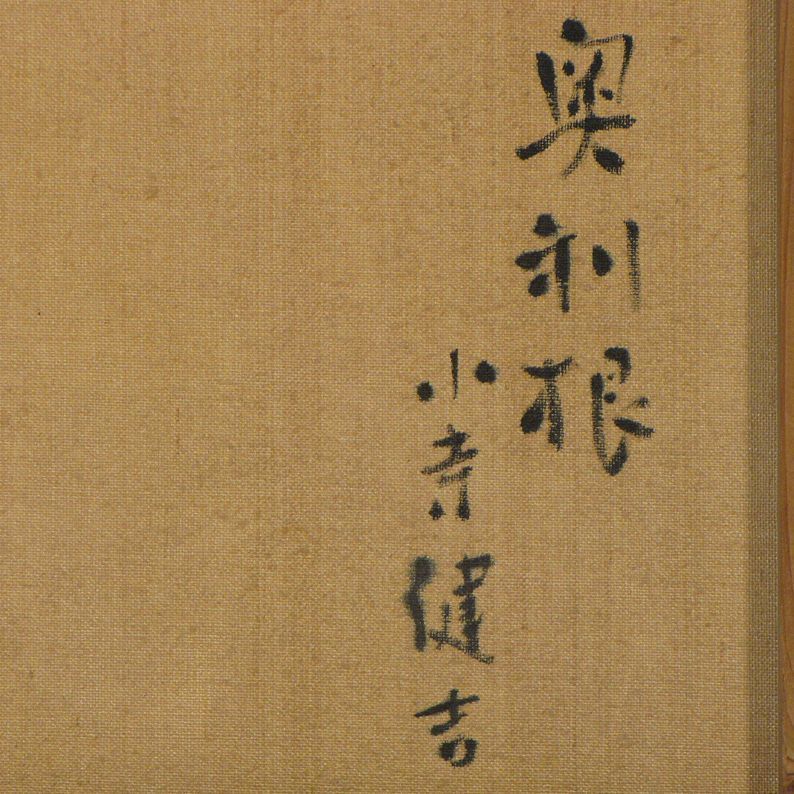 奥利根
小寺健吉